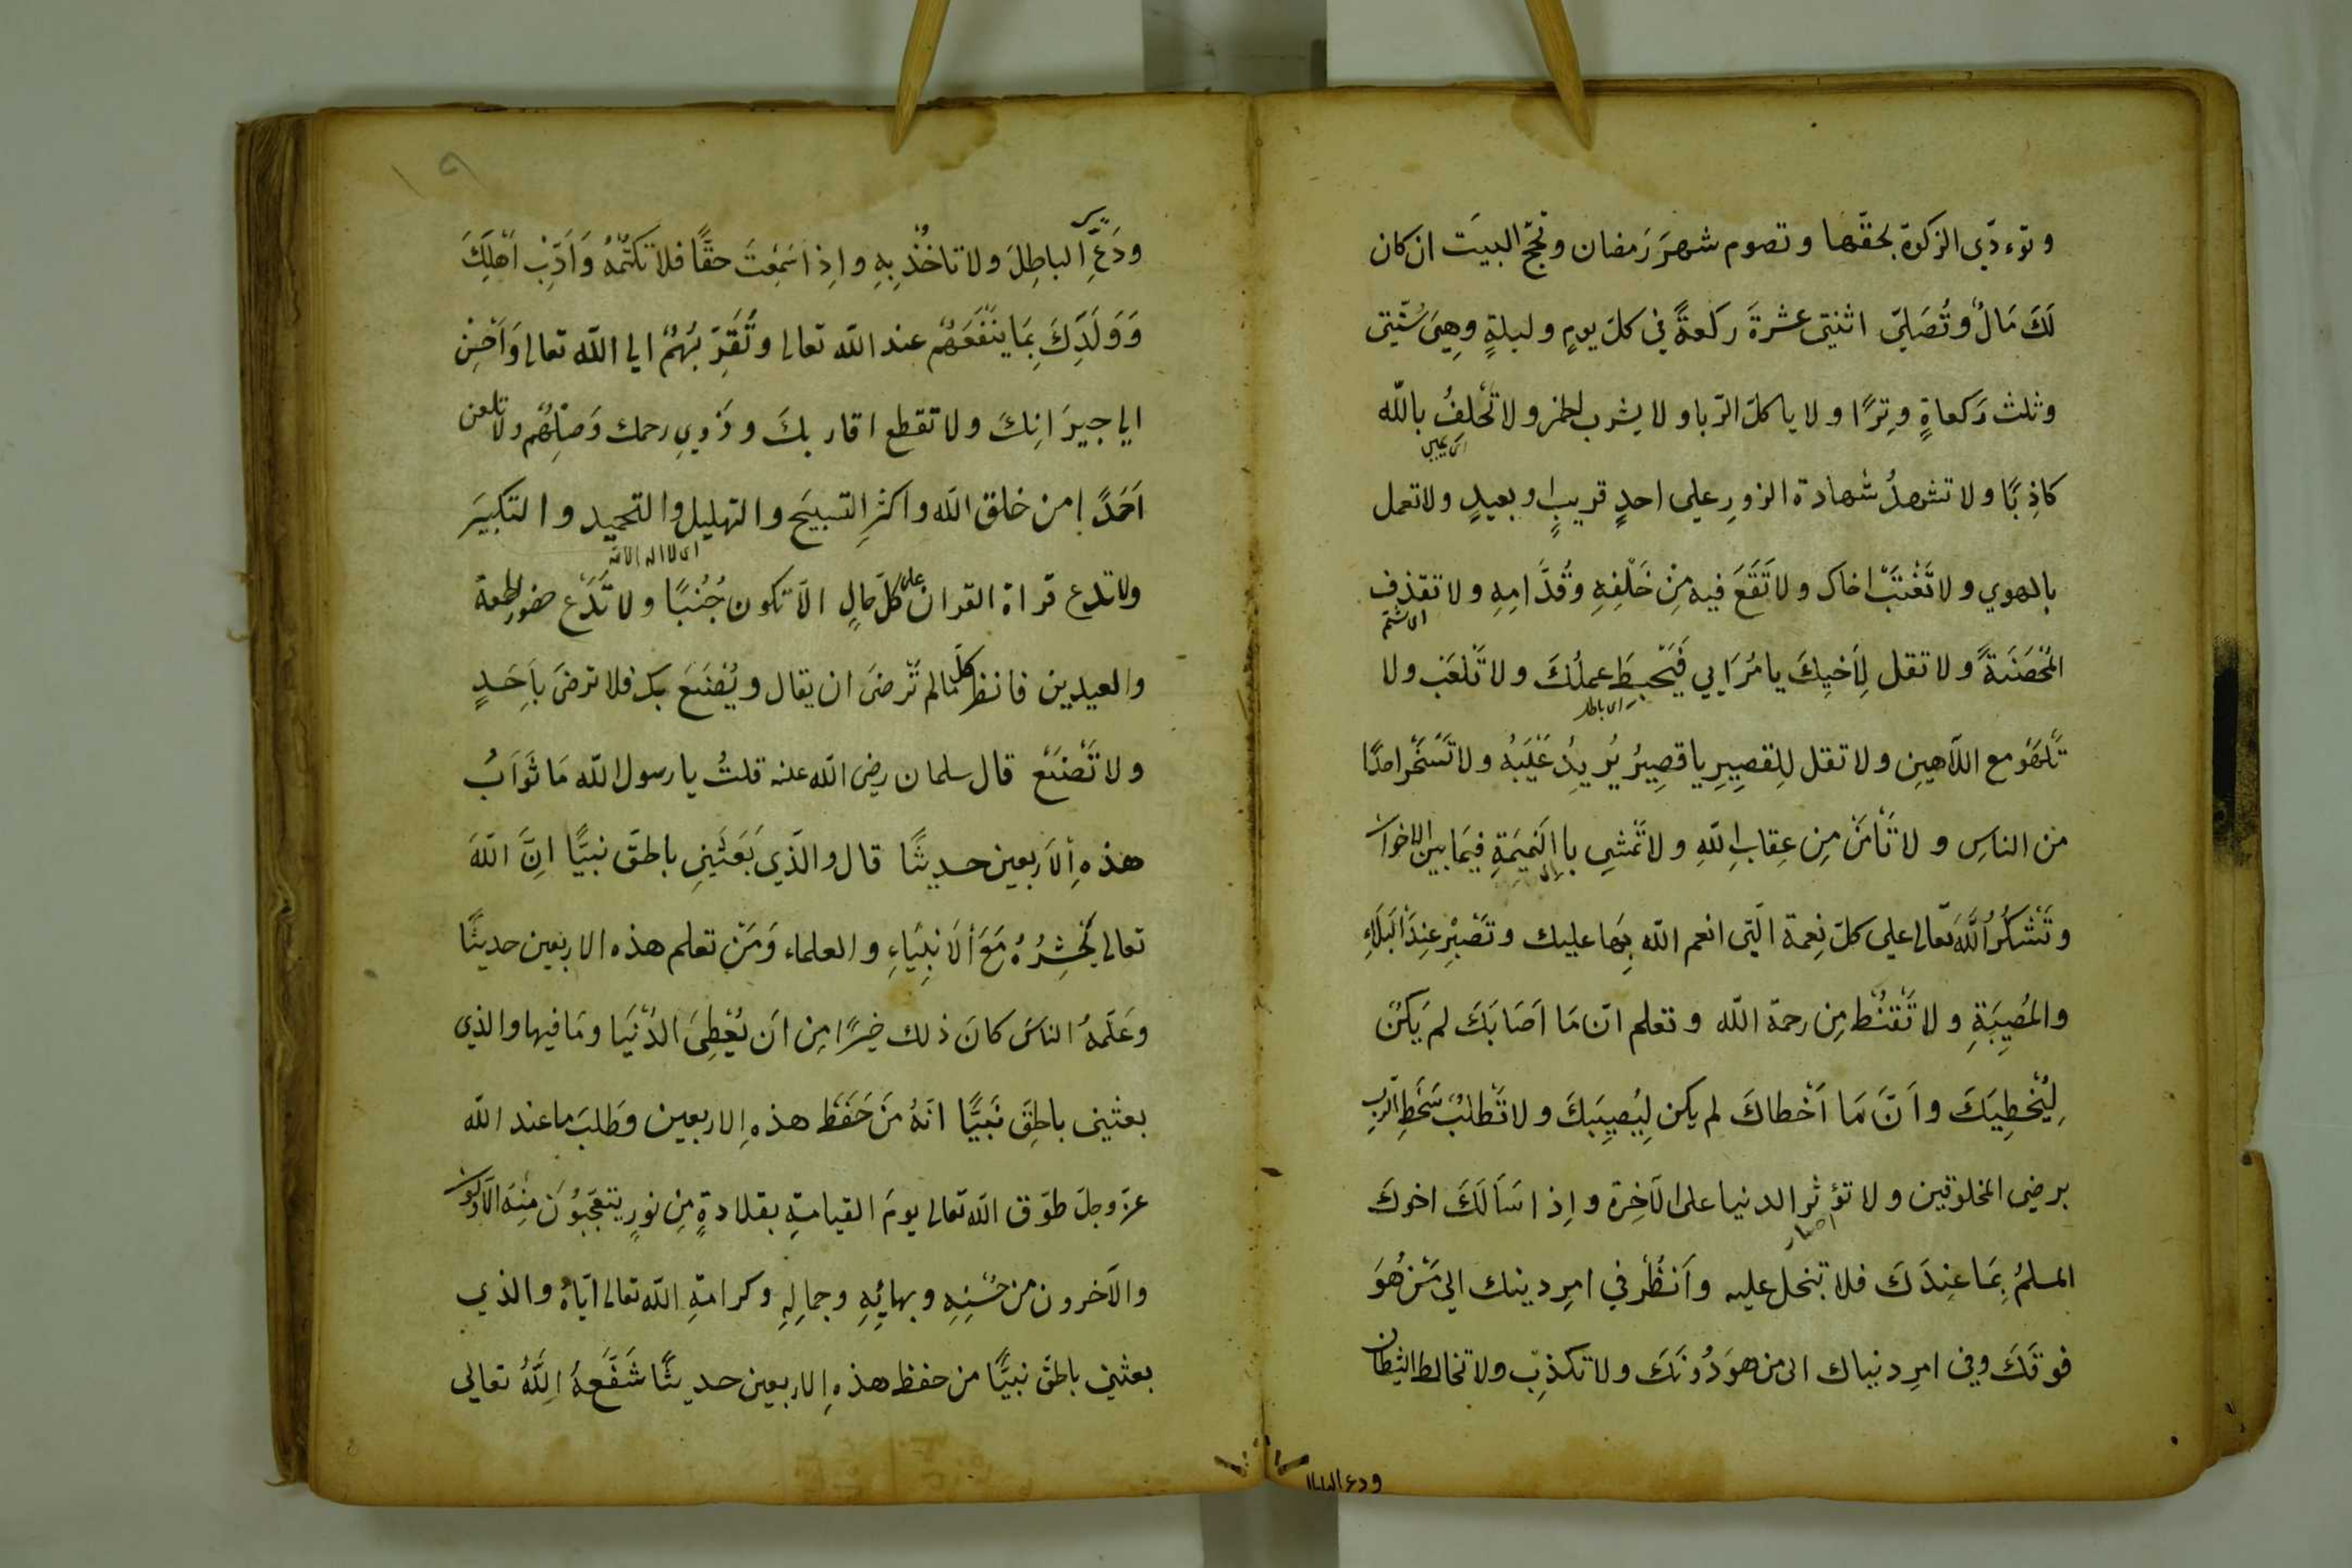 وتوءدّي الزكوة بحقّها وتصوم شهرَ رَمضان وتحجّ البيتَ ان كان
لَكَ مَالٌ وتُصَلِيّ اثنتى عشرةَ ركعةً في كلّ يومٍ وليلةٍ وهِيَ سُنّتِى
وثلث رَكعاةٍ وِترًا ولا ياكل الرّبا ولا يشرب الخمر ولا تَحْلِفُ باللّه
كاذِبًا ولا تشهدُ شهادة الزورِ على احدٍ قريبٍ او بعيدٍ ولا تعمل
بالهوي ولا تَغْتَبْ اخاك ولا تَقَعَ فيه مِنْ خَلْفِهِ وقُدَّامِهِ ولا تقذف
اى شتم
المُحْصَنَةَ ولا تقل لِأَخيِكَ يا مُرَايي فَيَحْبِطَ عملُكَ ولا تَلعَبْ ولا
اى باطل
تَلهَوْ مع اللّاهينِ ولا تقل لِلقصيِرِ يا قصِيرُ يُرِيدُ عَيْبَهُ ولا تَسْخَر احدًا
من الناسِ ولا تَأمَنْ مِن عِقابِ اللّهِ ولا تَمشي باالنَمِيمَةِ فيِمَا بين الاخوان
وتَشكُرُ اللّهَ تعَالى على كلّ نِعمة الّتى انعم اللّه بِهَا عليك وتَصْبِرْ عِندَ البَلَاءِ
والمُصِيبَةِ ولا تَقْنُط مِن رحمة اللّه وتعلم انّ مَا اَصَابَكَ لم يَكُنْ
لِيُخْطِيَكَ واَنَّ مَا اَخْطاكَ لم يكن لِيُصِيِبَكَ ولا تَطلبْ سَخَطِ الرّبِ
برضى المخلوقين ولا تؤثر الدنيا على الآخِرة وإِذا سَاَلَكَ اخوكَ
المسلمُ بِمَا عنِدَكَ فلا تبخل عليه وَاَنظُرْ في امرِ دينك الى مَنْ هُوَ
فوقَكَ وفي امرِ دنياك الى من هوَ دُونَكَ ولا تكذِب ولا تخالط الشيطان
ودع الباطل
١٩
ودَعِ الباطِلَ ولا تاخُذ بِهِ واِذا سَمِعتَ حقًّا فلا تكتُمْهُ وَاَدِّبْ اَهْلَكَ
وَوَلَدِكَ بِمَا ينَفَعَهُمْ عند اللّه تعالى وتُقَرِّبُهُمْ الي اللّه تعالى وَاَحْسِنْ
الي جيرَانِكَ ولا تقطع اقاربكَ وذَوِي رحمك وَصِلْهُم ولا تلعن
اَحَدًا من خلق اللّه واكثرِ التسبيحَ والتهليل والتحميد والتكبيَر
اى لا اله الا الله
ولا تدع قراة القران على كلّ حالٍ الاّ تكون جُنُبًا ولا تَدَع حضور الجمعة
والعيدين فانظر كلّما لم تَرضىَ ان يقال ويُصْنَعَ بك فلا ترضىَ بِاَحَدٍ
ولا تَصْنَعْ قال سلمان رضى اللّه عنه قلتُ يا رسول اللّه مَا ثَوَابُ
هذه الأربعين حديثًا قال والّذي بَعَثَنِي بالحقّ نبيًّا انَّ اللّهَ
تعالى يَحْشِرُهُ مَعَ الأنبِيَاءِ والعلماء وَمَنْ تعلم هذه الاربعين حديثًا
وعَلّمهُ الناسَ كانَ ذلك خيرًا مِن اَن يُعْطِيَ الدُنْيَا ومَا فيها والذي
بعثنِى بالحقِّ نَبَيًّا انّهُ مَنْ حَفَظ هذه الاربعين وطَلبَ ما عند اللّه
عزّ وجلّ طوّق اللّه تعالى يومَ القيامةِ بقلادةٍ مِن نورٍ يتعجّبُوُنَ مِنْهُ الاوّلون
والآخرون من حُسْنِهِ وبهائِهِ وجمالِهِ وكرامةِ اللّه تعالى ايّاهُ والذي
بعثني بالحقِّ نبيًّا من حفظ هذه الاربعين حديثًا شَفَّعَهُ اللّهُ تعالى